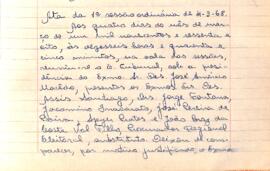 Ata da 1ª sessão ordinária de 4-3-68.
Aos quatro dias do mês de mar-
ço de um mil novecentos e sessenta e
oito, às dezesseis horas e quarenta e
cinco minutos, na sala das sessões,
reuniu-se o E. Tribunal, sob a pre-
sidência do Exmo. Sr. Des. José Antônio
presentes os Exmos. Srs. Des.
Assis Santiago, Drs. Jorge Fontana,
José Pereira de
Paiva, e João Braz da
Costa Val Filho, Procurador Regional
Eleitoral, substituto. Deixou de com-
parecer, por motivo justificado, o